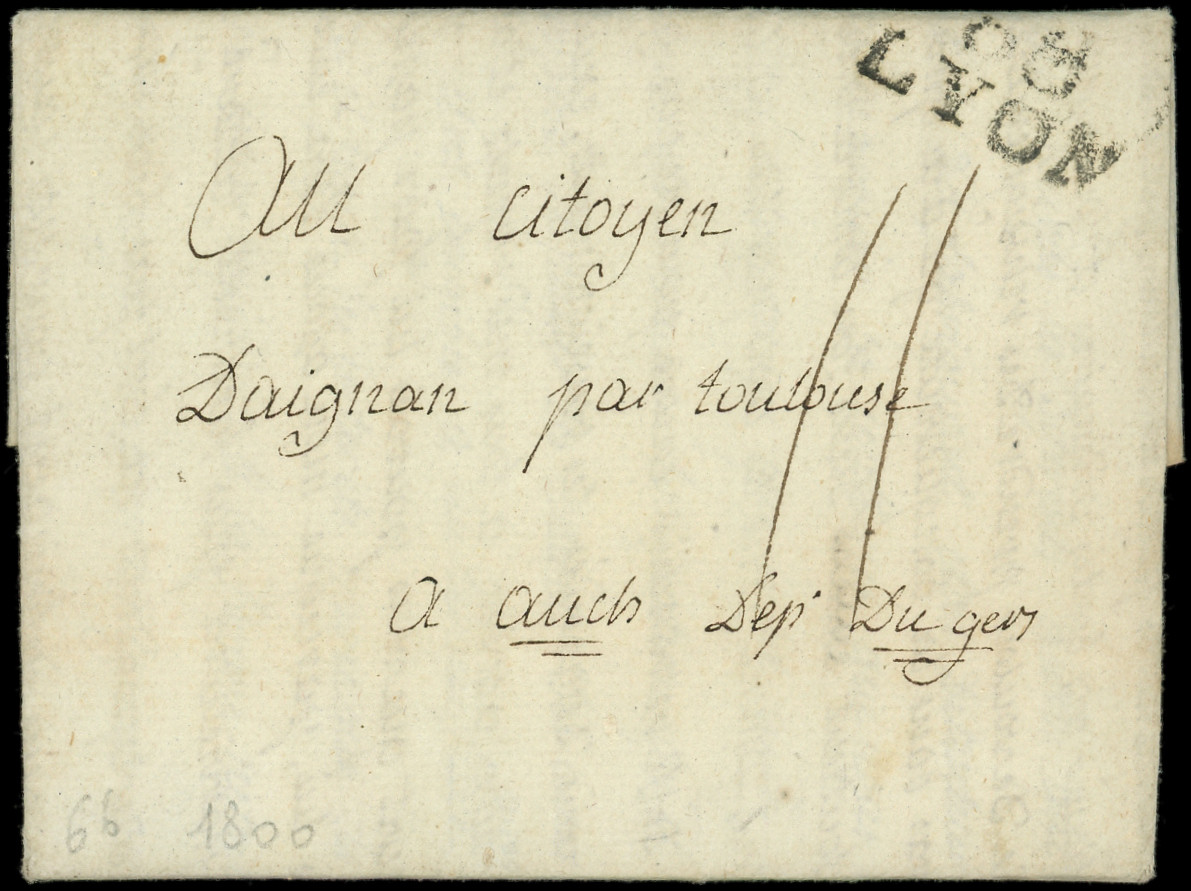 68
LYON
Au citoyen
Daignan par toulouse
11
a auch Dep.t Du gers
6b 1800